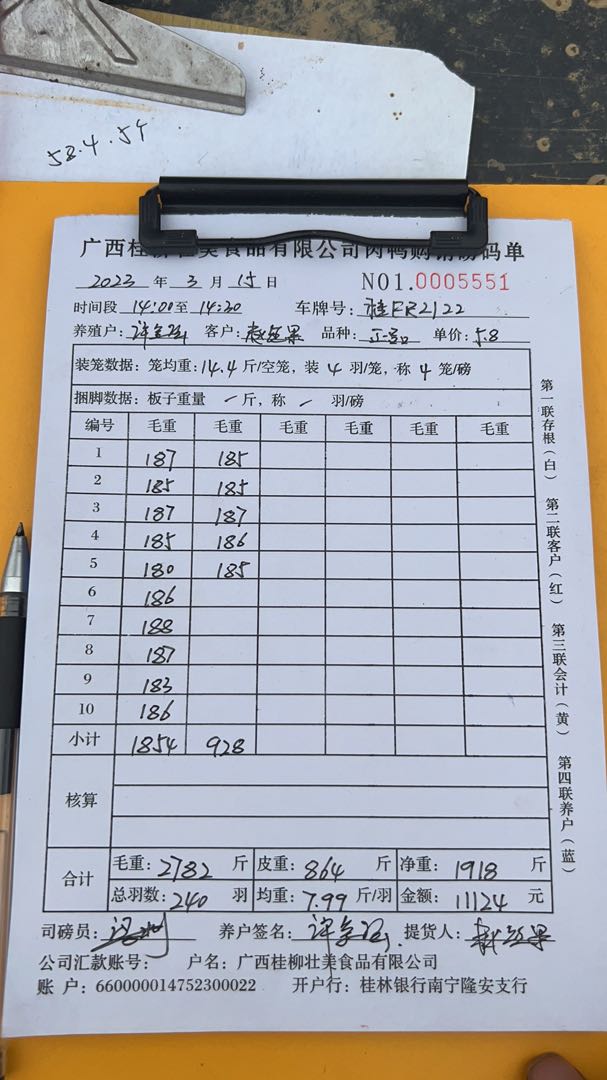 58.4.54
广西桂柳壮美食品有限公司肉鸭购销磅码单
2023 年 3 月 15 日 NO1.0005551
时间段 14:00至 14:20 车牌号: 桂FR2122
养殖户: 客户: 品种: 单价: 5.8
装笼数据: 笼均重:14.4 斤/空笼, 装 4 羽/笼, 称 4 笼/磅
捆脚数据: 板子重量 斤, 称 羽/磅
编号 毛重 毛重 毛重 毛重 毛重 毛重
1 187 185
2 185 185
3 187 187
4 185 186
5 180 185
6 186
7 188
8 187
9 183
10 186
小计 1854 928
核算
合计 毛重: 2782 斤 皮重: 864 斤 净重: 1918 斤
总羽数: 240 羽 均重: 7.99 斤/羽 金额: 11124 元
司磅员: 养户签名: 提货人:
公司汇款账号: 户名: 广西桂柳壮美食品有限公司
账 户: 660000014752300022 开户行: 桂林银行南宁隆安支行
第一联存根(白) 第二联客户(红) 第三联会计(黄) 第四联养户(蓝)